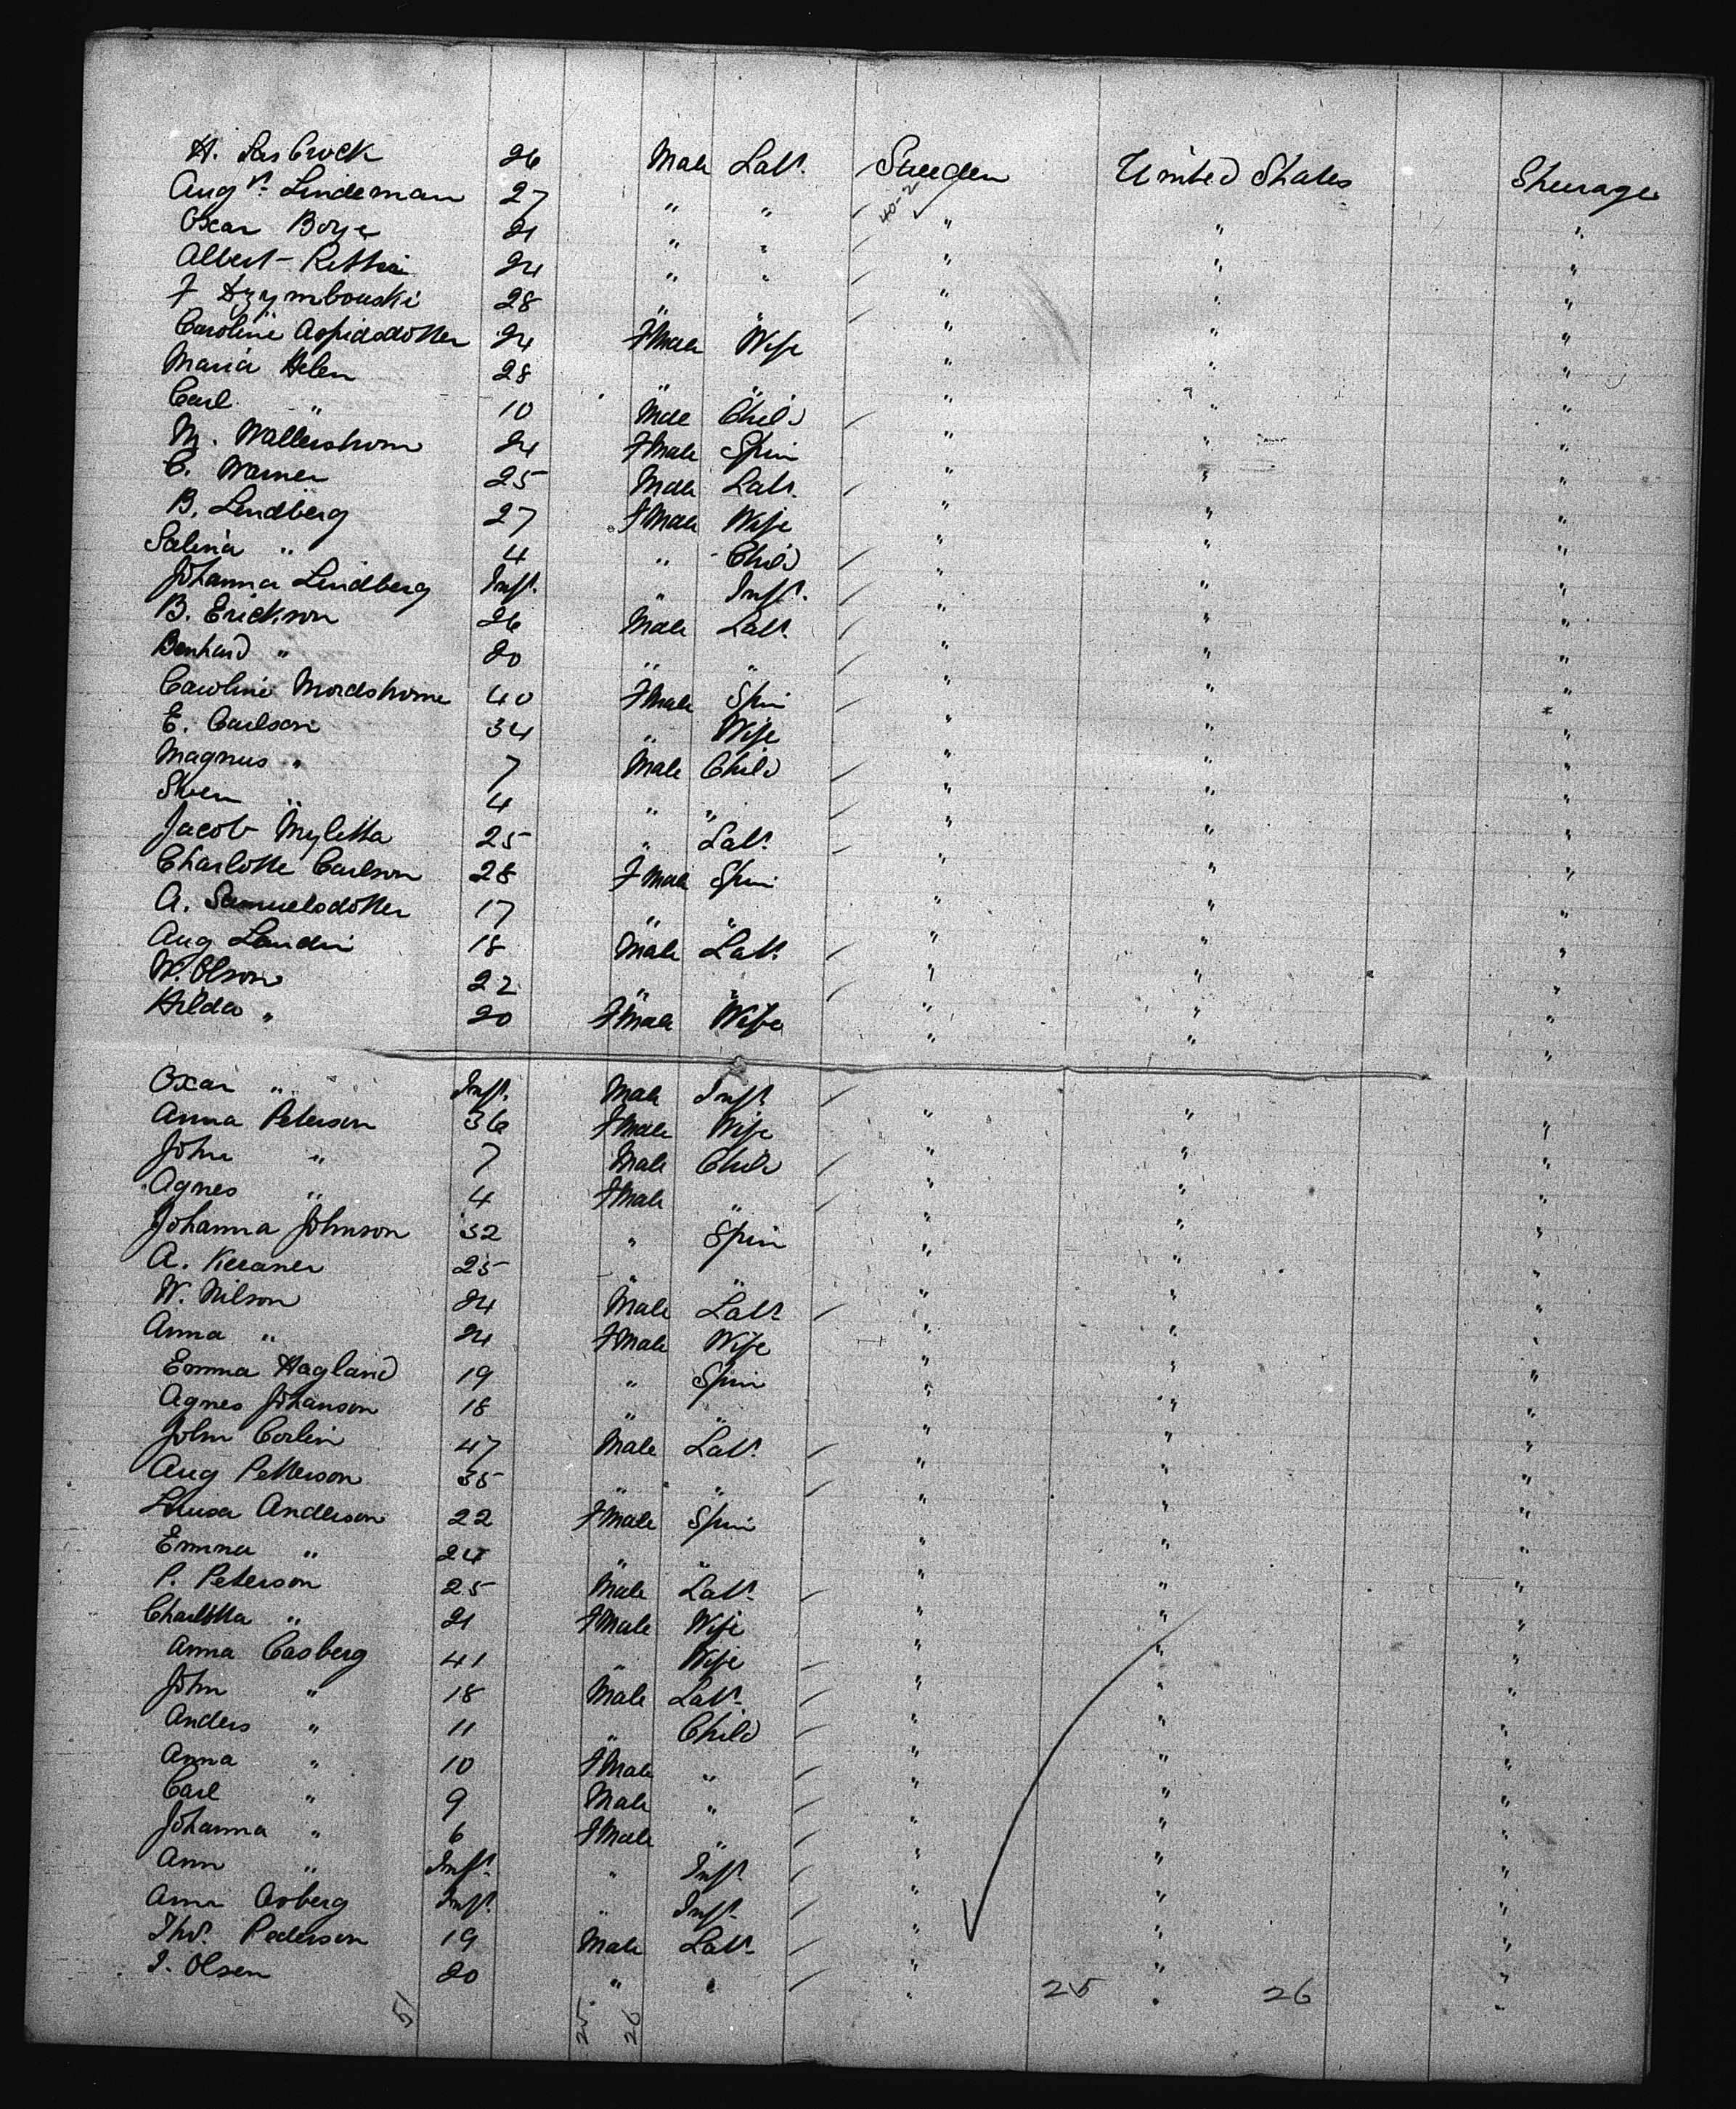 H. Krbrock 26 Male Labr. Sweden United States Steerage
Augst. Lindeman 27 " " " " "
Oscar Borje 21 " " " " "
Albert 24 " " " " "
J 28 " " " " "
Caroline 24 Fmale Wife " " "
Maria Helen 28 " " " " "
Carl " 10 Male Child " " "
M. Wallerstrom 24 Fmale Spin " " "
C. Warner 25 Male Labr. " " "
B. Lindberg 27 Fmale Wife " " "
Salina " 4 " Child " " "
Johanna Lindberg Inft. " Inft. " " "
B. Erickson 26 Male Labr. " " "
Benhard " 20 " " " " "
Caroline Nordstrome 40 Fmale Spin " " "
E. Carlson 34 " Wife " " "
Magnus " 7 Male Child " " "
Sven " 4 " " " " "
Jacob Myletta 25 " Labr. " " "
Charlotte Carlson 28 Fmale Spin " " "
A. Samuelsdotter 17 " " " " "
Aug Landin 18 Male Labr. " " "
W. Olson 22 " " " " "
Hilda " 20 Fmale Wife " " "
Oscar " Inft. Male Inft. " " "
Anna Peterson 36 Fmale Wife " " "
John " 7 Male Child " " "
Agnes " 4 Fmale " " " "
Johanna Johnson 32 " Spin " " "
A. Keraner 25 " " " " "
W. Nilson 24 Male Labr. " " "
Anna " 24 Fmale Wife " " "
Emma Hagland 19 " Spin " " "
Agnes Johanson 18 " " " " "
John Corlin 47 Male Labr. " " "
Aug Petterson 35 " " " " "
Louisa Anderson 22 Fmale Spin " " "
Emma " 24 " " " " "
P. Peterson 25 Male Labr. " " "
Charlotta " 21 Fmale Wife " " "
Anna Casberg 41 " Wife " " "
John " 18 Male Labr. " " "
Anders " 11 " Child " " "
Anna " 10 Fmale " " " "
Carl " 9 Male " " " "
Johanna " 6 Fmale " " " "
Ann " Inft. " Inft. " " "
Anna Asberg Inft. " Inft. " " "
Thos. Pederson 19 Male Labr. " " "
I. Olsen 20 " " " " "
51 25 26 25 26